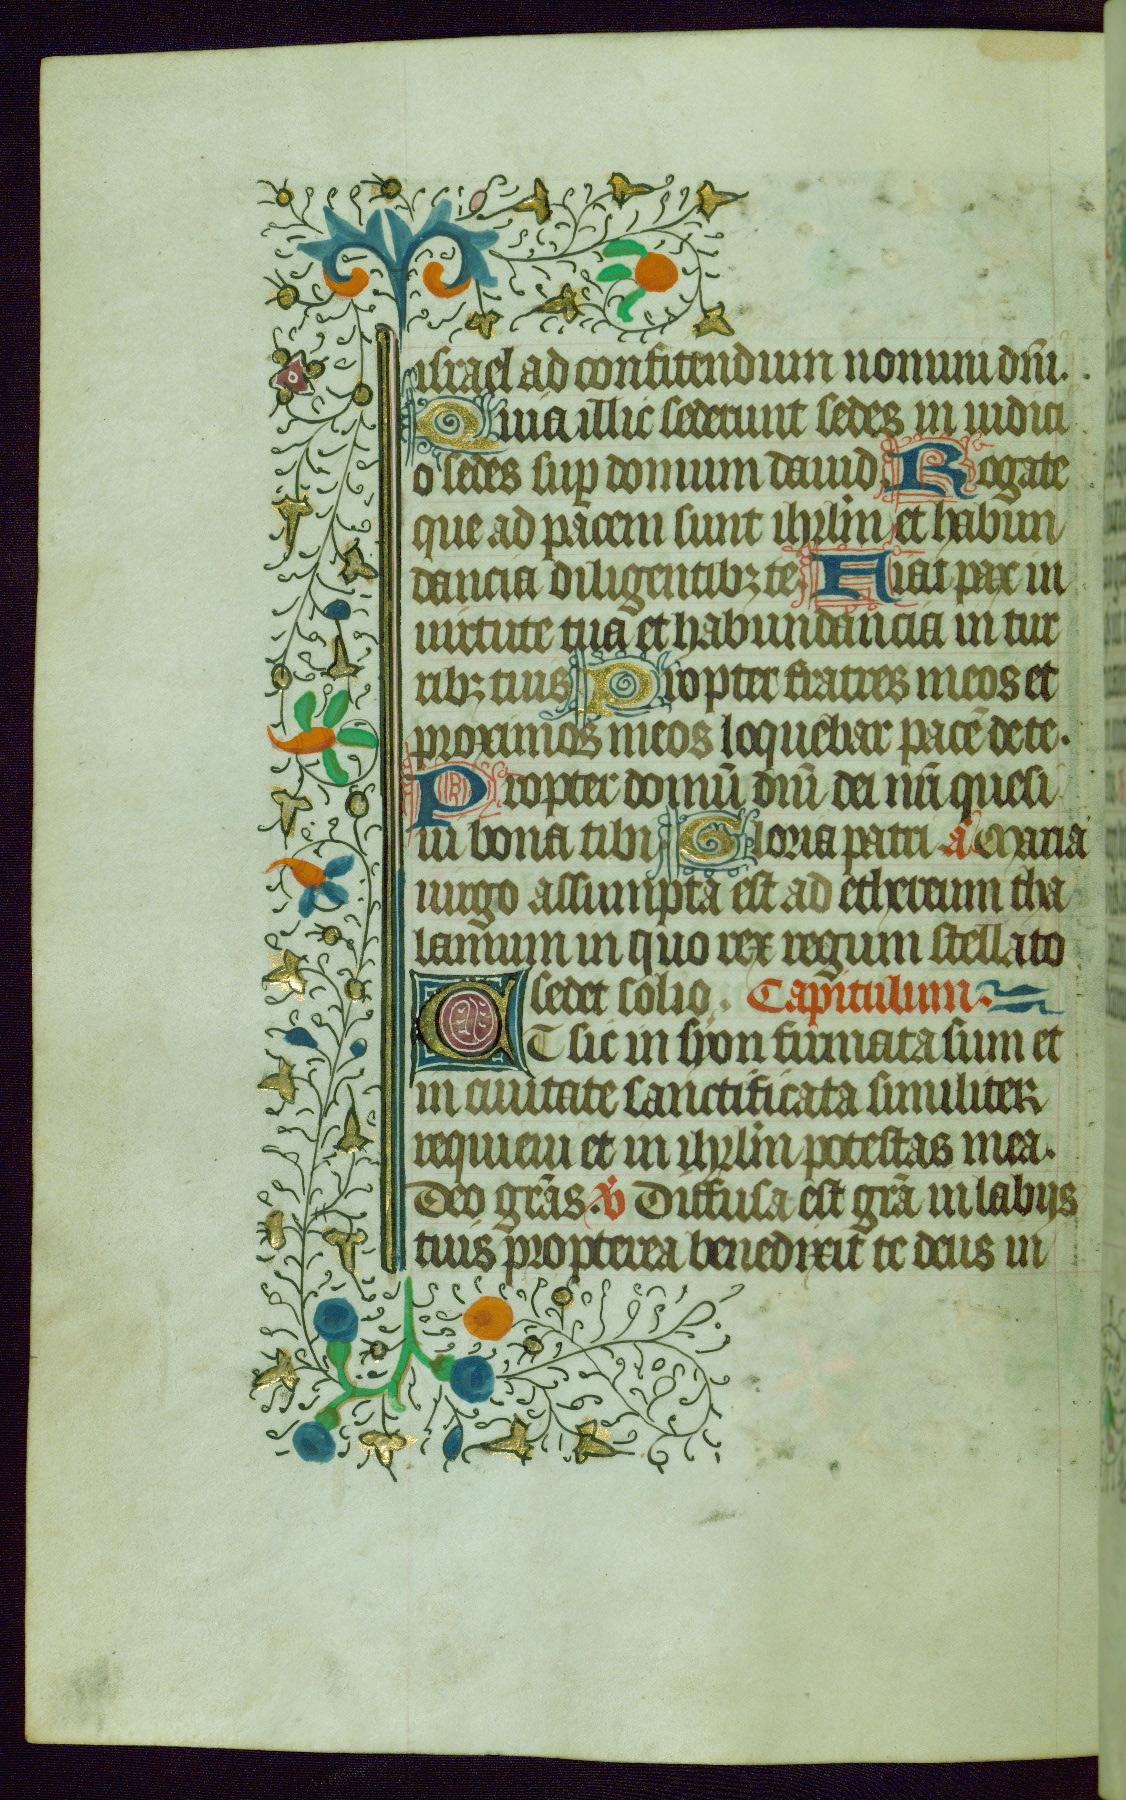 israel ad confitendum nomini dn̄i.
Quia illic sederunt sedes in iudici
o sedes sup domum dauid Rogate
que ad pacem sunt ihrlm̄ et habun
dancia diligentibꝫ te. Fiat pax in
uirtute tua et habundancia in tur
ribꝫ tuis Propter fratres meos et
proximos meos loquebar pacē de te.
Propter domū dn̄i dei nr̄i quesi
ui bona tibi Gloria patri a Maria
uirgo assumpta est ad ethereum tha
lamum in quo rex regum stellato
sedet solio. Capitulum.
ET sic in syon firmata sum et
in ciuitate sanctificata similiter
requieui et in ihrlm̄ potestas mea.
Deo grās. V Diffusa est grā in labijs
tuis propterea benedixit te deus in